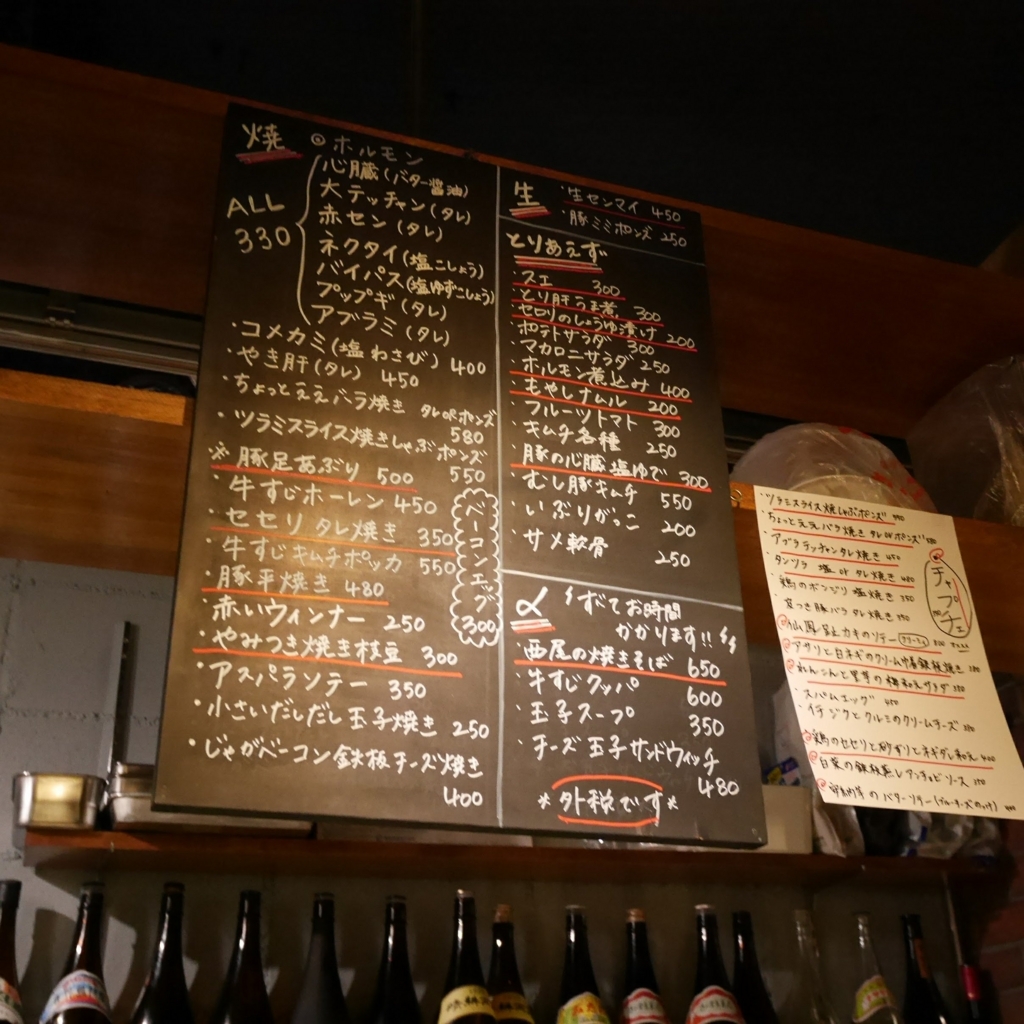 焼
◎ホルモン
ALL
330
心臓(バター醤油)
大テッチャン(タレ)
赤セン(タレ)
ネクタイ(塩こしょう)
バイパス(塩ゆずこしょう)
プップギ(タレ)
アブラミ(タレ)
・コメカミ(塩わさび) 400
・やき肝(タレ) 450
・ちょっとええバラ焼き タレorポンズ
580
・ツラミスライス焼きしゃぶポンズ
550
※豚足あぶり 500
・牛すじホーレン 450
・セセリタレ焼き 350
・牛すじキムチポッカ 550
・豚平焼き 480
・赤いウィンナー 250
・やみつき焼き枝豆 300
・アスパラソテー 350
・小さいだしだし玉子焼き 250
・じゃがベーコン鉄板チーズ焼き
400
ベーコンエッグ
300
生
・生センマイ 450
・豚ミミポンズ 250
とりあえず
・スエ 300
・とり肝うま煮 300
・セロリのしょうゆ漬け 200
・ポテトサラダ 300
・マカロニサラダ 250
・ホルモン煮込み 400
・もやしナムル 200
・フルーツトマト 300
・キムチ各種 250
・豚の心臓塩ゆで 300
・むし豚キムチ 550
・いぶりがっこ 200
・サメ軟骨 250
〆
すべてお時間
かかります!!
・西尾の焼きそば 650
・牛すじクッパ 600
・玉子スープ 350
・チーズ玉子サンドウィッチ
480
*外税です*
・ツラミスライス焼しゃぶポンズ
・ちょっとええバラ焼き タレorポンズ
・アブラテッチャンタレ焼き 450
・タンツラ 塩orタレ焼き 480
・鶏のボンジリ塩焼き 350
豚バラタレ焼き
カキのソテー
・アサリと白ネギのクリーム
・れんこんと里芋の
・スパムエッグ 450
・イチジクとクルミのクリームチーズ
・鶏のセセリと砂ずりとネギダレ和え 400
・白菜の鉄板蒸しアンチョビソース
のバターソテー
チャプチェ